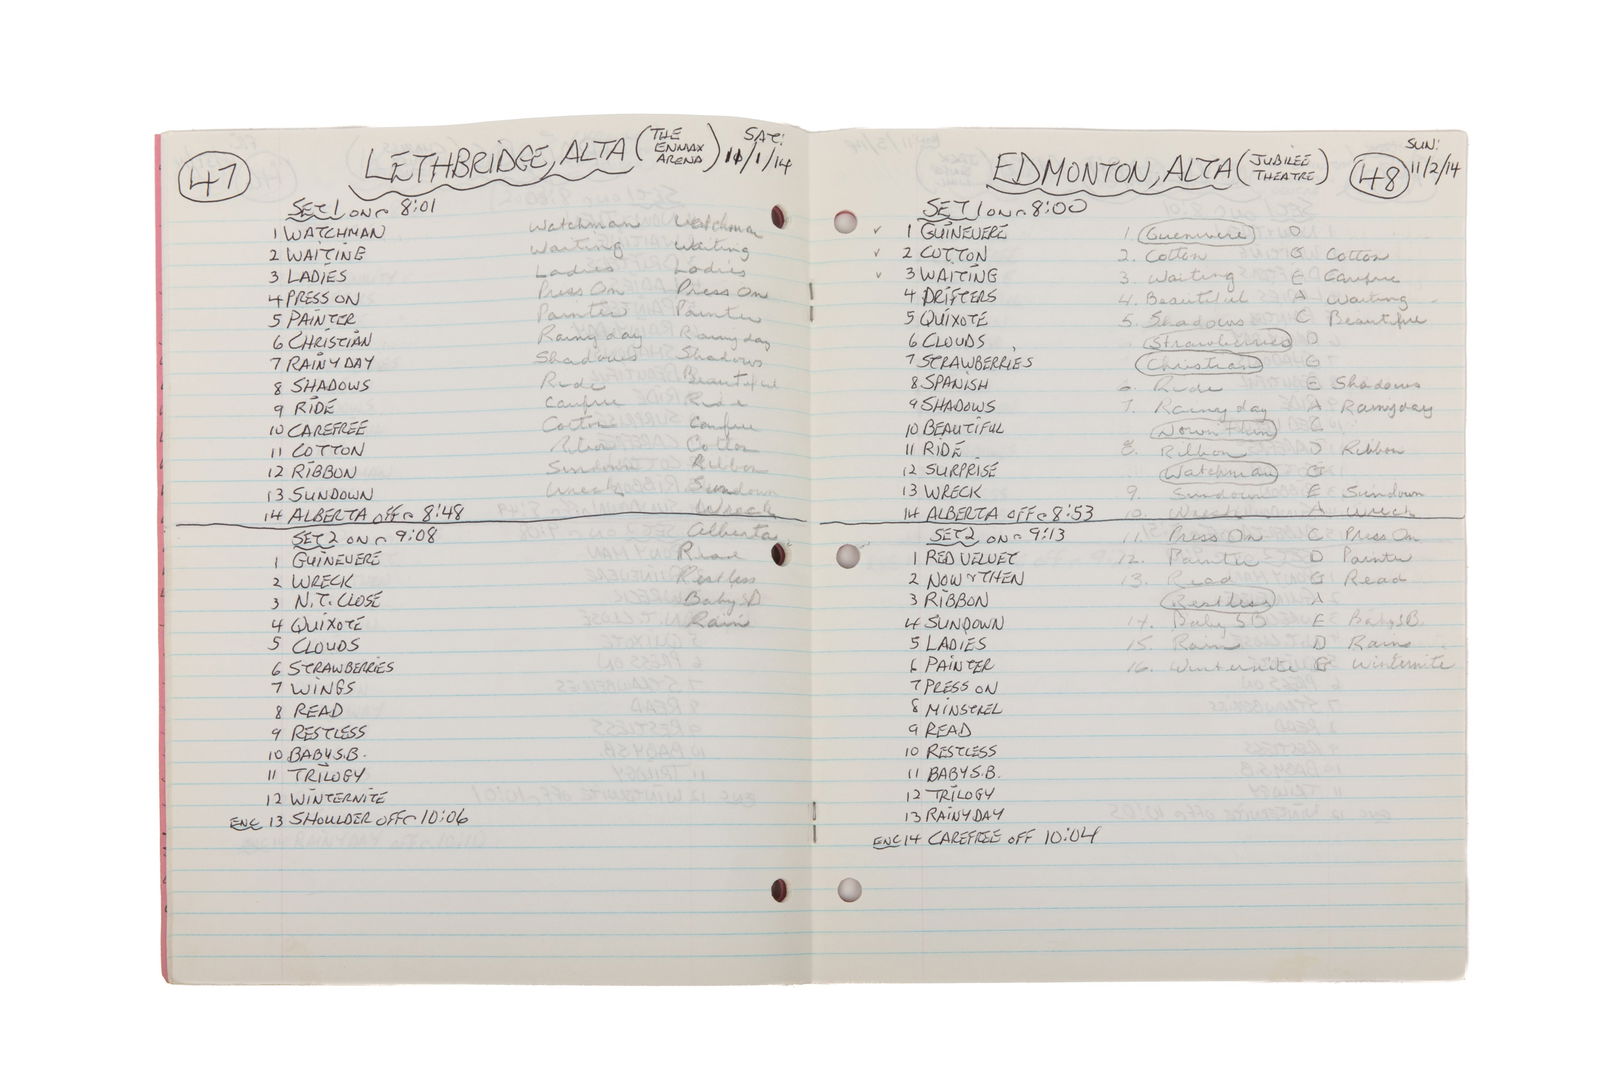 47 LETHBRIDGE, ALTA (THE ENMAX ARENA) SAT: 11/1/14
SET 1 ON 8:01
1 WATCHMAN Watchman Watchman
2 WAITING Waiting Waiting
3 LADIES Ladies Ladies
4 PRESS ON Press On Press On
5 PAINTER Painter Painter
6 CHRISTIAN Rainy day Rainy day
7 RAINY DAY Shadows Shadows
8 SHADOWS Ride Beautiful
9 RIDE Carefree Ride
10 CAREFREE Cotton Carefree
11 COTTON Ribbon Cotton
12 RIBBON Sundown Ribbon
13 SUNDOWN Wreck Sundown
14 ALBERTA OFF 8:48 Wreck
SET 2 ON 9:08 Alberta
1 GUINEVERE Read
2 WRECK Restless
3 N.T. CLOSE Baby SB
4 QUIXOTE Rain
5 CLOUDS
6 STRAWBERRIES
7 WINGS
8 READ
9 RESTLESS
10 BABY S.B.
11 TRILOGY
12 WINTERNITE
ENC 13 SHOULDER OFF 10:06
EDMONTON, ALTA (JUBILEE THEATRE) 48 SUN: 11/2/14
SET 1 ON 8:00
✓ 1 GUINEVERE 1. Guenivere D
✓ 2 COTTON 2. Cotton G Cotton
✓ 3 WAITING 3. Waiting E Carefree
4 DRIFTERS 4. Beautiful A Waiting
5 QUIXOTE 5. Shadows C Beautiful
6 CLOUDS Strawberries D
7 STRAWBERRIES Christian G
8 SPANISH 6. Ride E Shadows
9 SHADOWS 7. Rainy day A Rainy day
10 BEAUTIFUL Now + Then C
11 RIDE 8. Ribbon D Ribbon
12 SURPRISE Watchman G
13 WRECK 9. Sundown E Sundown
14 ALBERTA OFF 8:53 10. Wreck A Wreck
SET 2 ON 9:13 11. Press On C Press On
1 RED VELVET 12. Painter D Painter
2 NOW & THEN 13. Read G Read
3 RIBBON Restless A
4 SUNDOWN 14. Baby S B E Baby S.B.
5 LADIES 15. Rain D Rain
6 PAINTER 16. Winternite G Winternite
7 PRESS ON
8 MINSTREL
9 READ
10 RESTLESS
11 BABY S.B.
12 TRILOGY
13 RAINY DAY
ENC 14 CAREFREE OFF 10:04